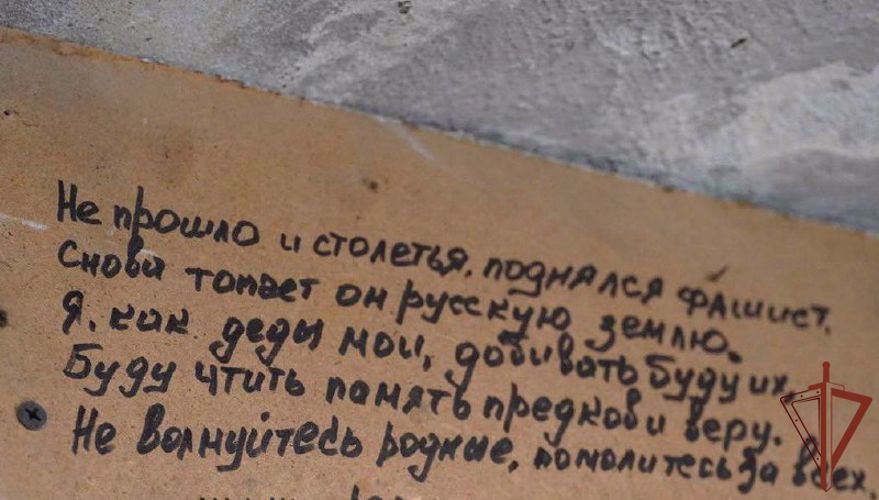 Не прошло и столетья, поднялся фашист.
Снова топает он русскую землю.
Я, как деды мои, добивать буду их,
Буду чтить память предков и веру.
Не волнуйтесь родные, помолитесь за всех,